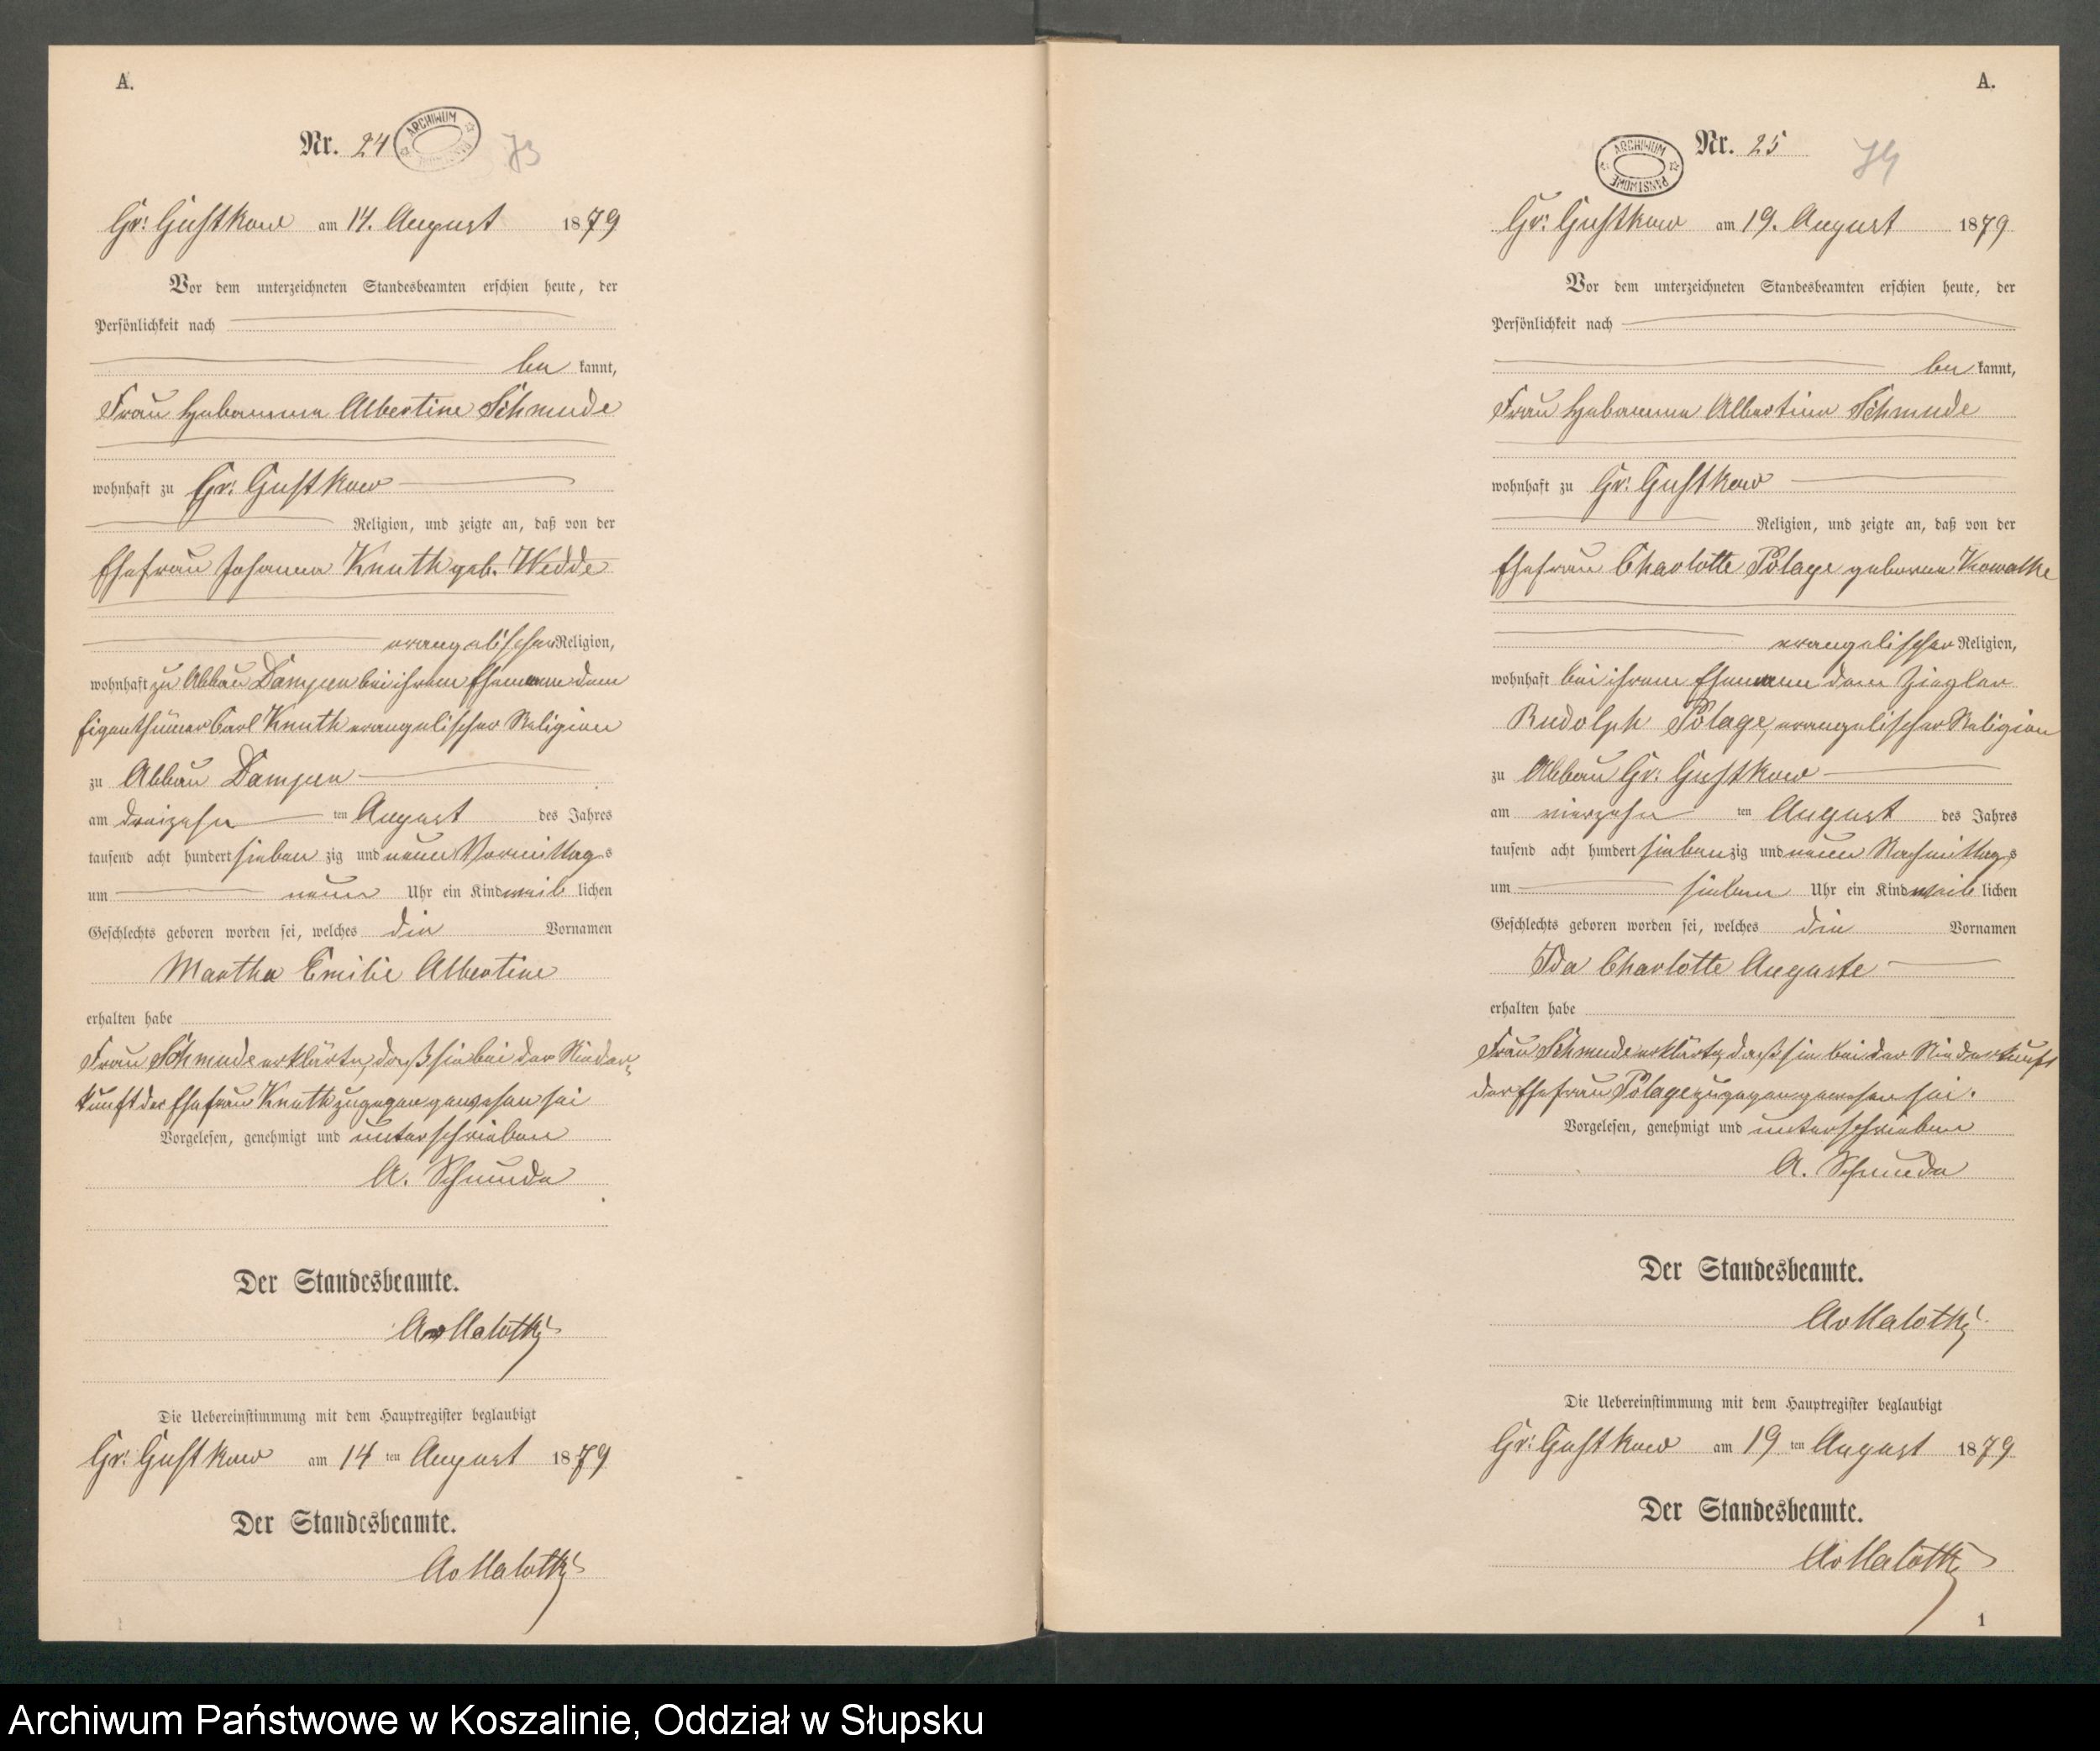 A.
Nr. 24
ARCHIWUM
73
Gr: Gustkow am 14. August 1879
Vor dem unterzeichneten Standesbeamten erschien heute, der
Persönlichkeit nach
be kannt,
Frau Hebamme Albertine Schmude
wohnhaft zu Gr: Gustkow
Religion, und zeigte an, daß von der
Ehefrau Johanna Knuth geb. Wedde
evangelischer Religion,
wohnhaft zu Abbau Dampen bei ihrem Ehemanne dem
Eigenthümer Carl Knuth evangelischer Religion
zu Abbau Dampen
am dreizehn ten August des Jahres
tausend acht hundert sieben zig und neun Vormittags
um neun Uhr ein Kind weib lichen
Geschlechts geboren worden sei, welches die Vornamen
Martha Emilie Albertine
erhalten habe
Frau Schmude erklärte, daß sie bei der Nieder-
kunft der Ehefrau Knuth zugegen gewesen sei
Vorgelesen, genehmigt und unterschrieben
A. Schmude
Der Standesbeamte.
AvMalotki
Die Uebereinstimmung mit dem Hauptregister beglaubigt
Gr: Gustkow am 14 ten August 1879
Der Standesbeamte.
AvMalotki
A.
ARCHIWUM PAŃSTWOWE
Nr. 25
74
Gr: Gustkow am 19. August 1879
Vor dem unterzeichneten Standesbeamten erschien heute, der
Persönlichkeit nach
be kannt,
Frau Hebamme Albertine Schmude
wohnhaft zu Gr: Gustkow
Religion, und zeigte an, daß von der
Ehefrau Charlotte Polage geborene Kowalke
evangelischer Religion,
wohnhaft bei ihrem Ehemanne dem Ziegler
Rudolph Polage, evangelischer Religion
zu Abbau Gr: Gustkow
am vierzehn ten August des Jahres
tausend acht hundert sieben zig und neun Nachmittags
um sieben Uhr ein Kind weib lichen
Geschlechts geboren worden sei, welches die Vornamen
Ida Charlotte Auguste
erhalten habe
Frau Schmude erklärte, daß sie bei der Niederkunft
der Ehefrau Polage zugegen gewesen sei.
Vorgelesen, genehmigt und unterschrieben
A. Schmude
Der Standesbeamte.
AvMalotki
Die Uebereinstimmung mit dem Hauptregister beglaubigt
Gr: Gustkow am 19 ten August 1879
Der Standesbeamte.
AvMalotki
1
Archiwum Państwowe w Koszalinie, Oddział w Słupsku